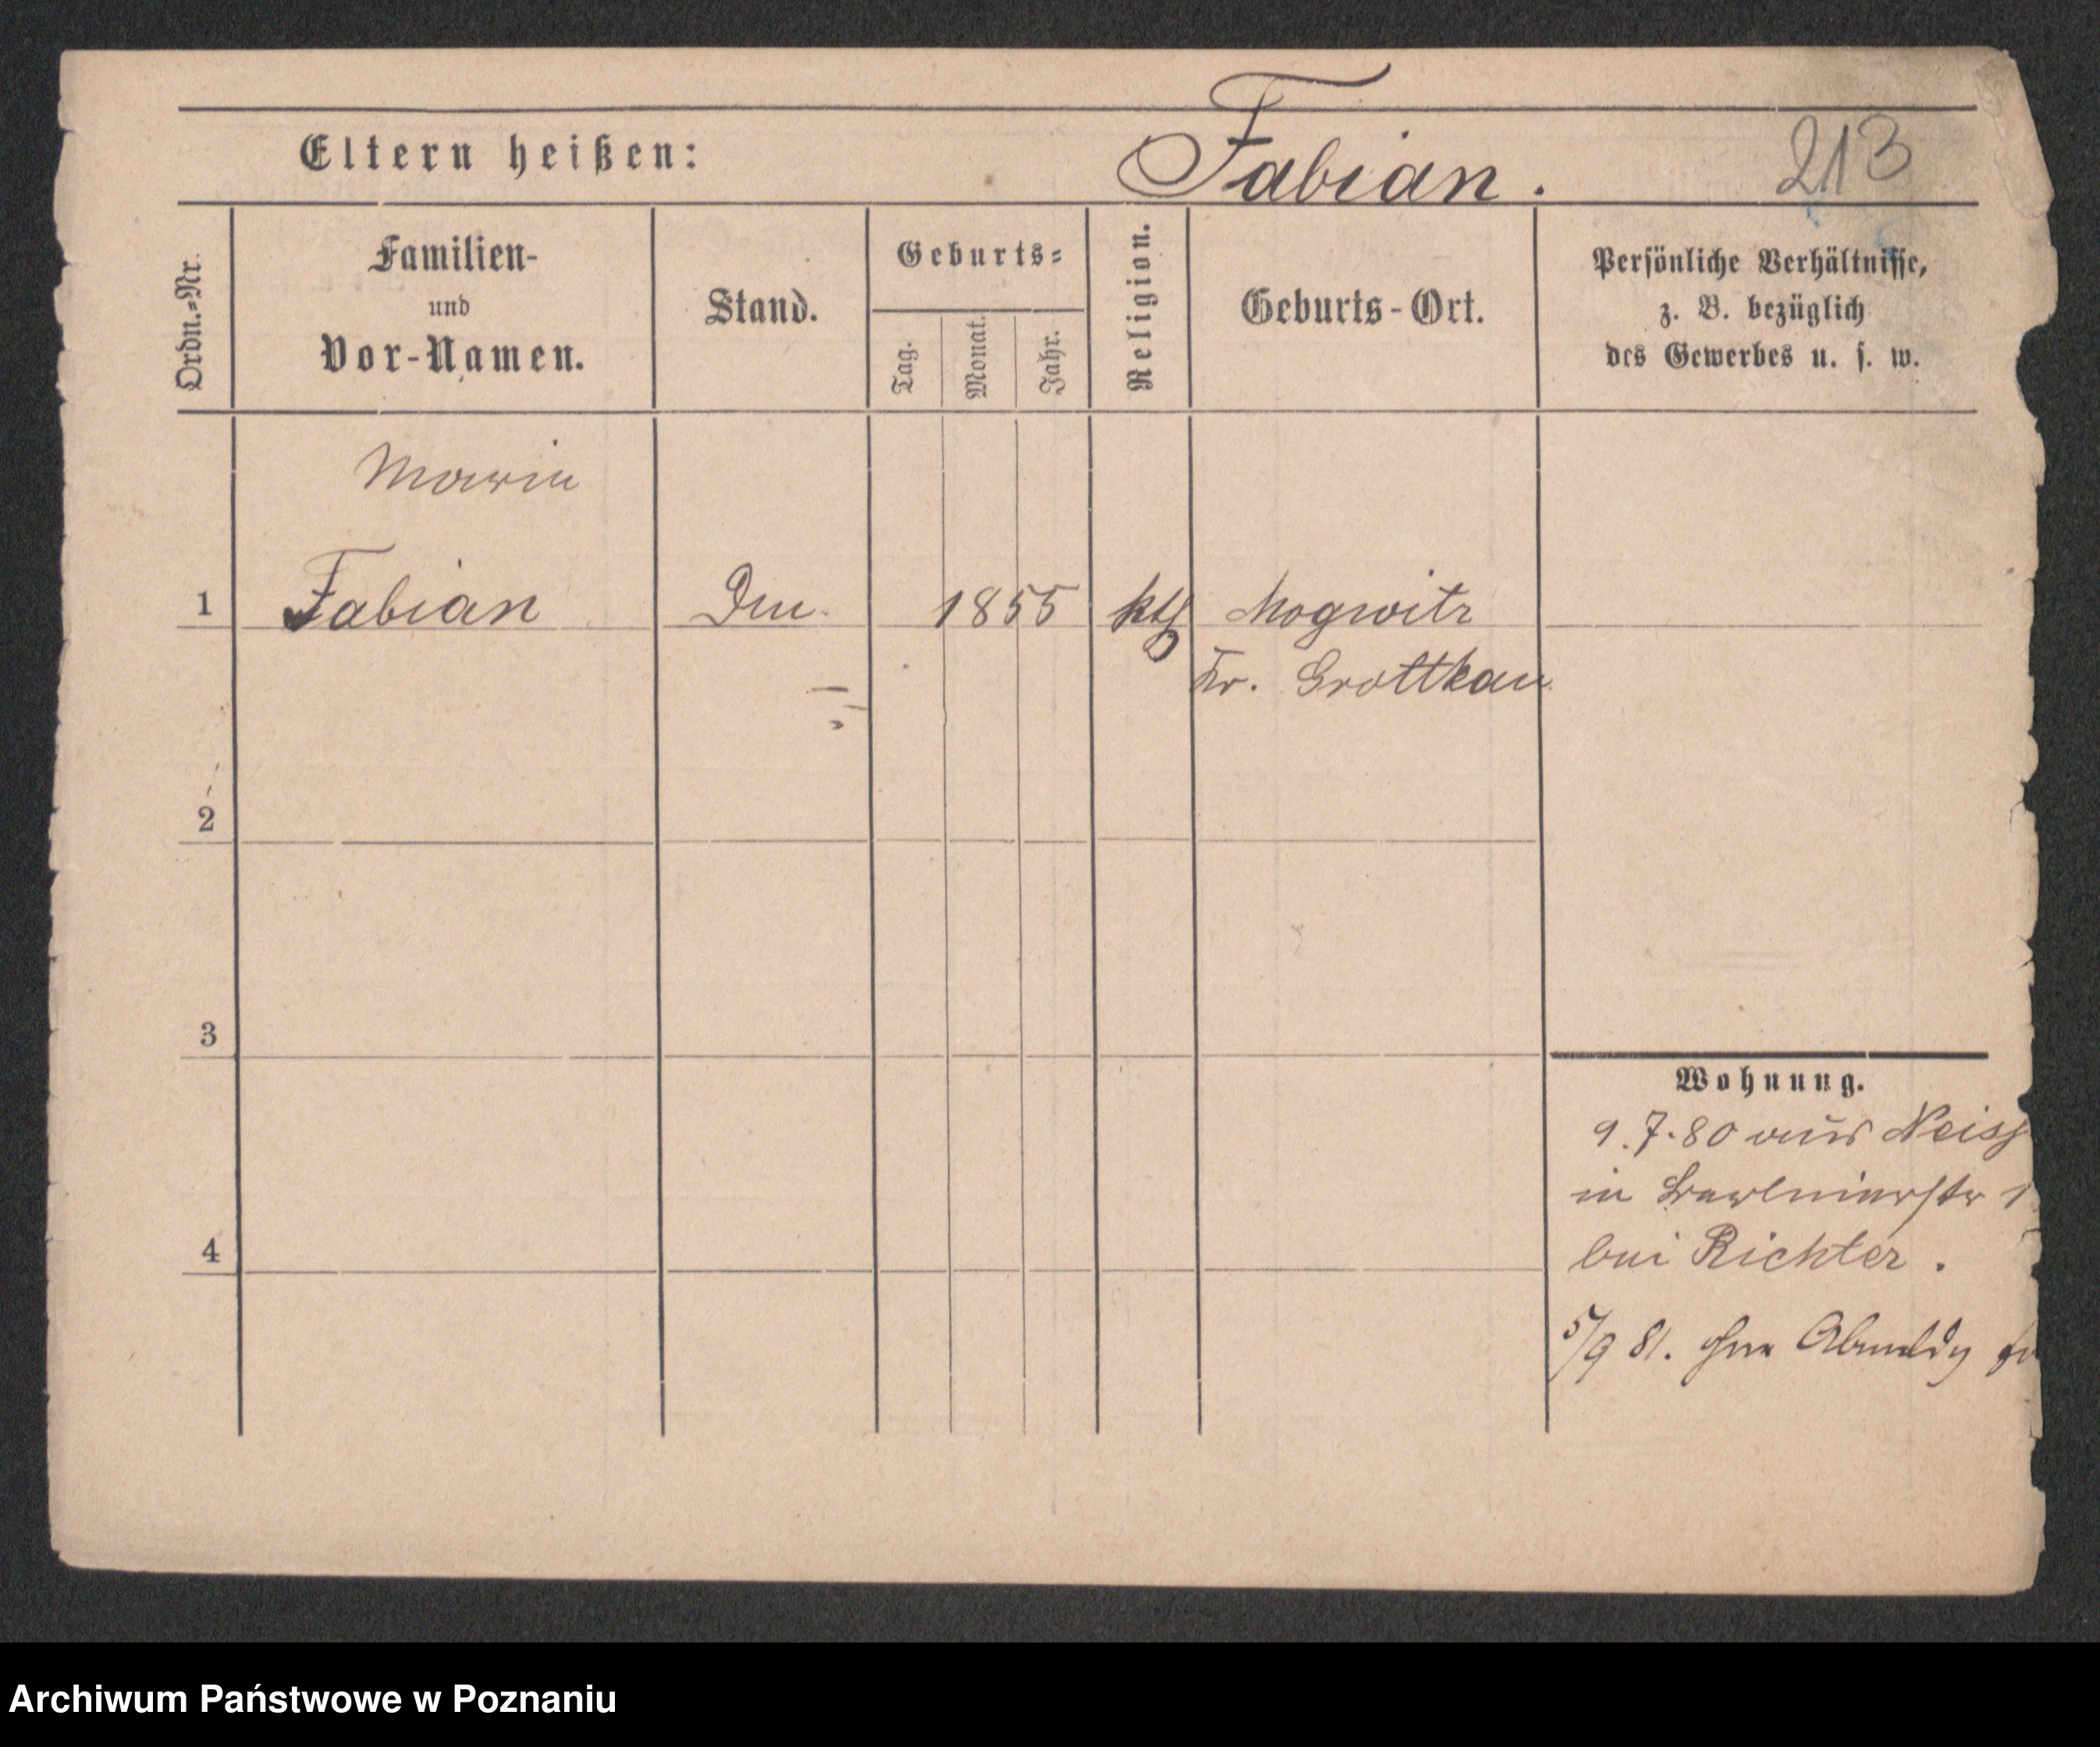 Eltern heißen: Fabian. 213
Ordn.-Nr.
Familien-
und
Vor-Namen.
Stand.
Geburts-
Tag.
Monat.
Jahr.
Religion.
Geburts-Ort.
Persönliche Verhältnisse,
z. B. bezüglich
des Gewerbes u. s. w.
Marie
1 Fabian 1855 kth Mogwitz
Kr. Grottkau
2
3
4
Wohnung.
9.7.80 aus Neiss
in Berlinerstr 1
bei Richter.
5/9 81. ohne Abmeldg
Archiwum Państwowe w Poznaniu